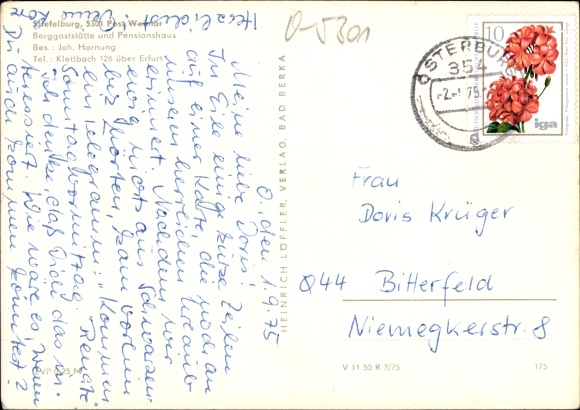 Stiefelburg, 5301 Post Weimar
Berggaststätte und Pensionshaus
Bes.: Joh. Hornung
Tel.: Klettbach 126 über Erfurt
D-5301
O., den 1.9.75
Meine liebe Doris!
In Eile einige kurze Zeilen
auf einer Karte, die noch an
unseren herrlichen Urlaub
erinnert. Nachdem wir
ewig nichts aus Schwarzen-
bez hörten, kam vorhin
ein Telegramm: "Kommen
Sonntagvormittag. Renate
Ich denke, daß Dich das in-
teressiert. Wie wäre es, wenn
Du auch kommen könntest?
Herzlichst
Deine
EVP 0,25 M
HEINRICH LÖFFLER, VERLAG, BAD BERKA
OSTERBURG
354
-2.-9.75
10
iga
Frau
Doris Krüger
Q44 Bitterfeld
Niemegkerstr. 8
V 11 50 R 3/75
175